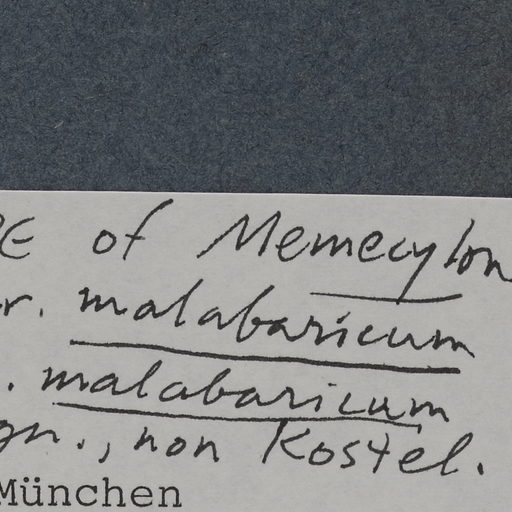 PE of Memecylon
r. malabaricum
. malabaricum
gn., non Kostel.
München